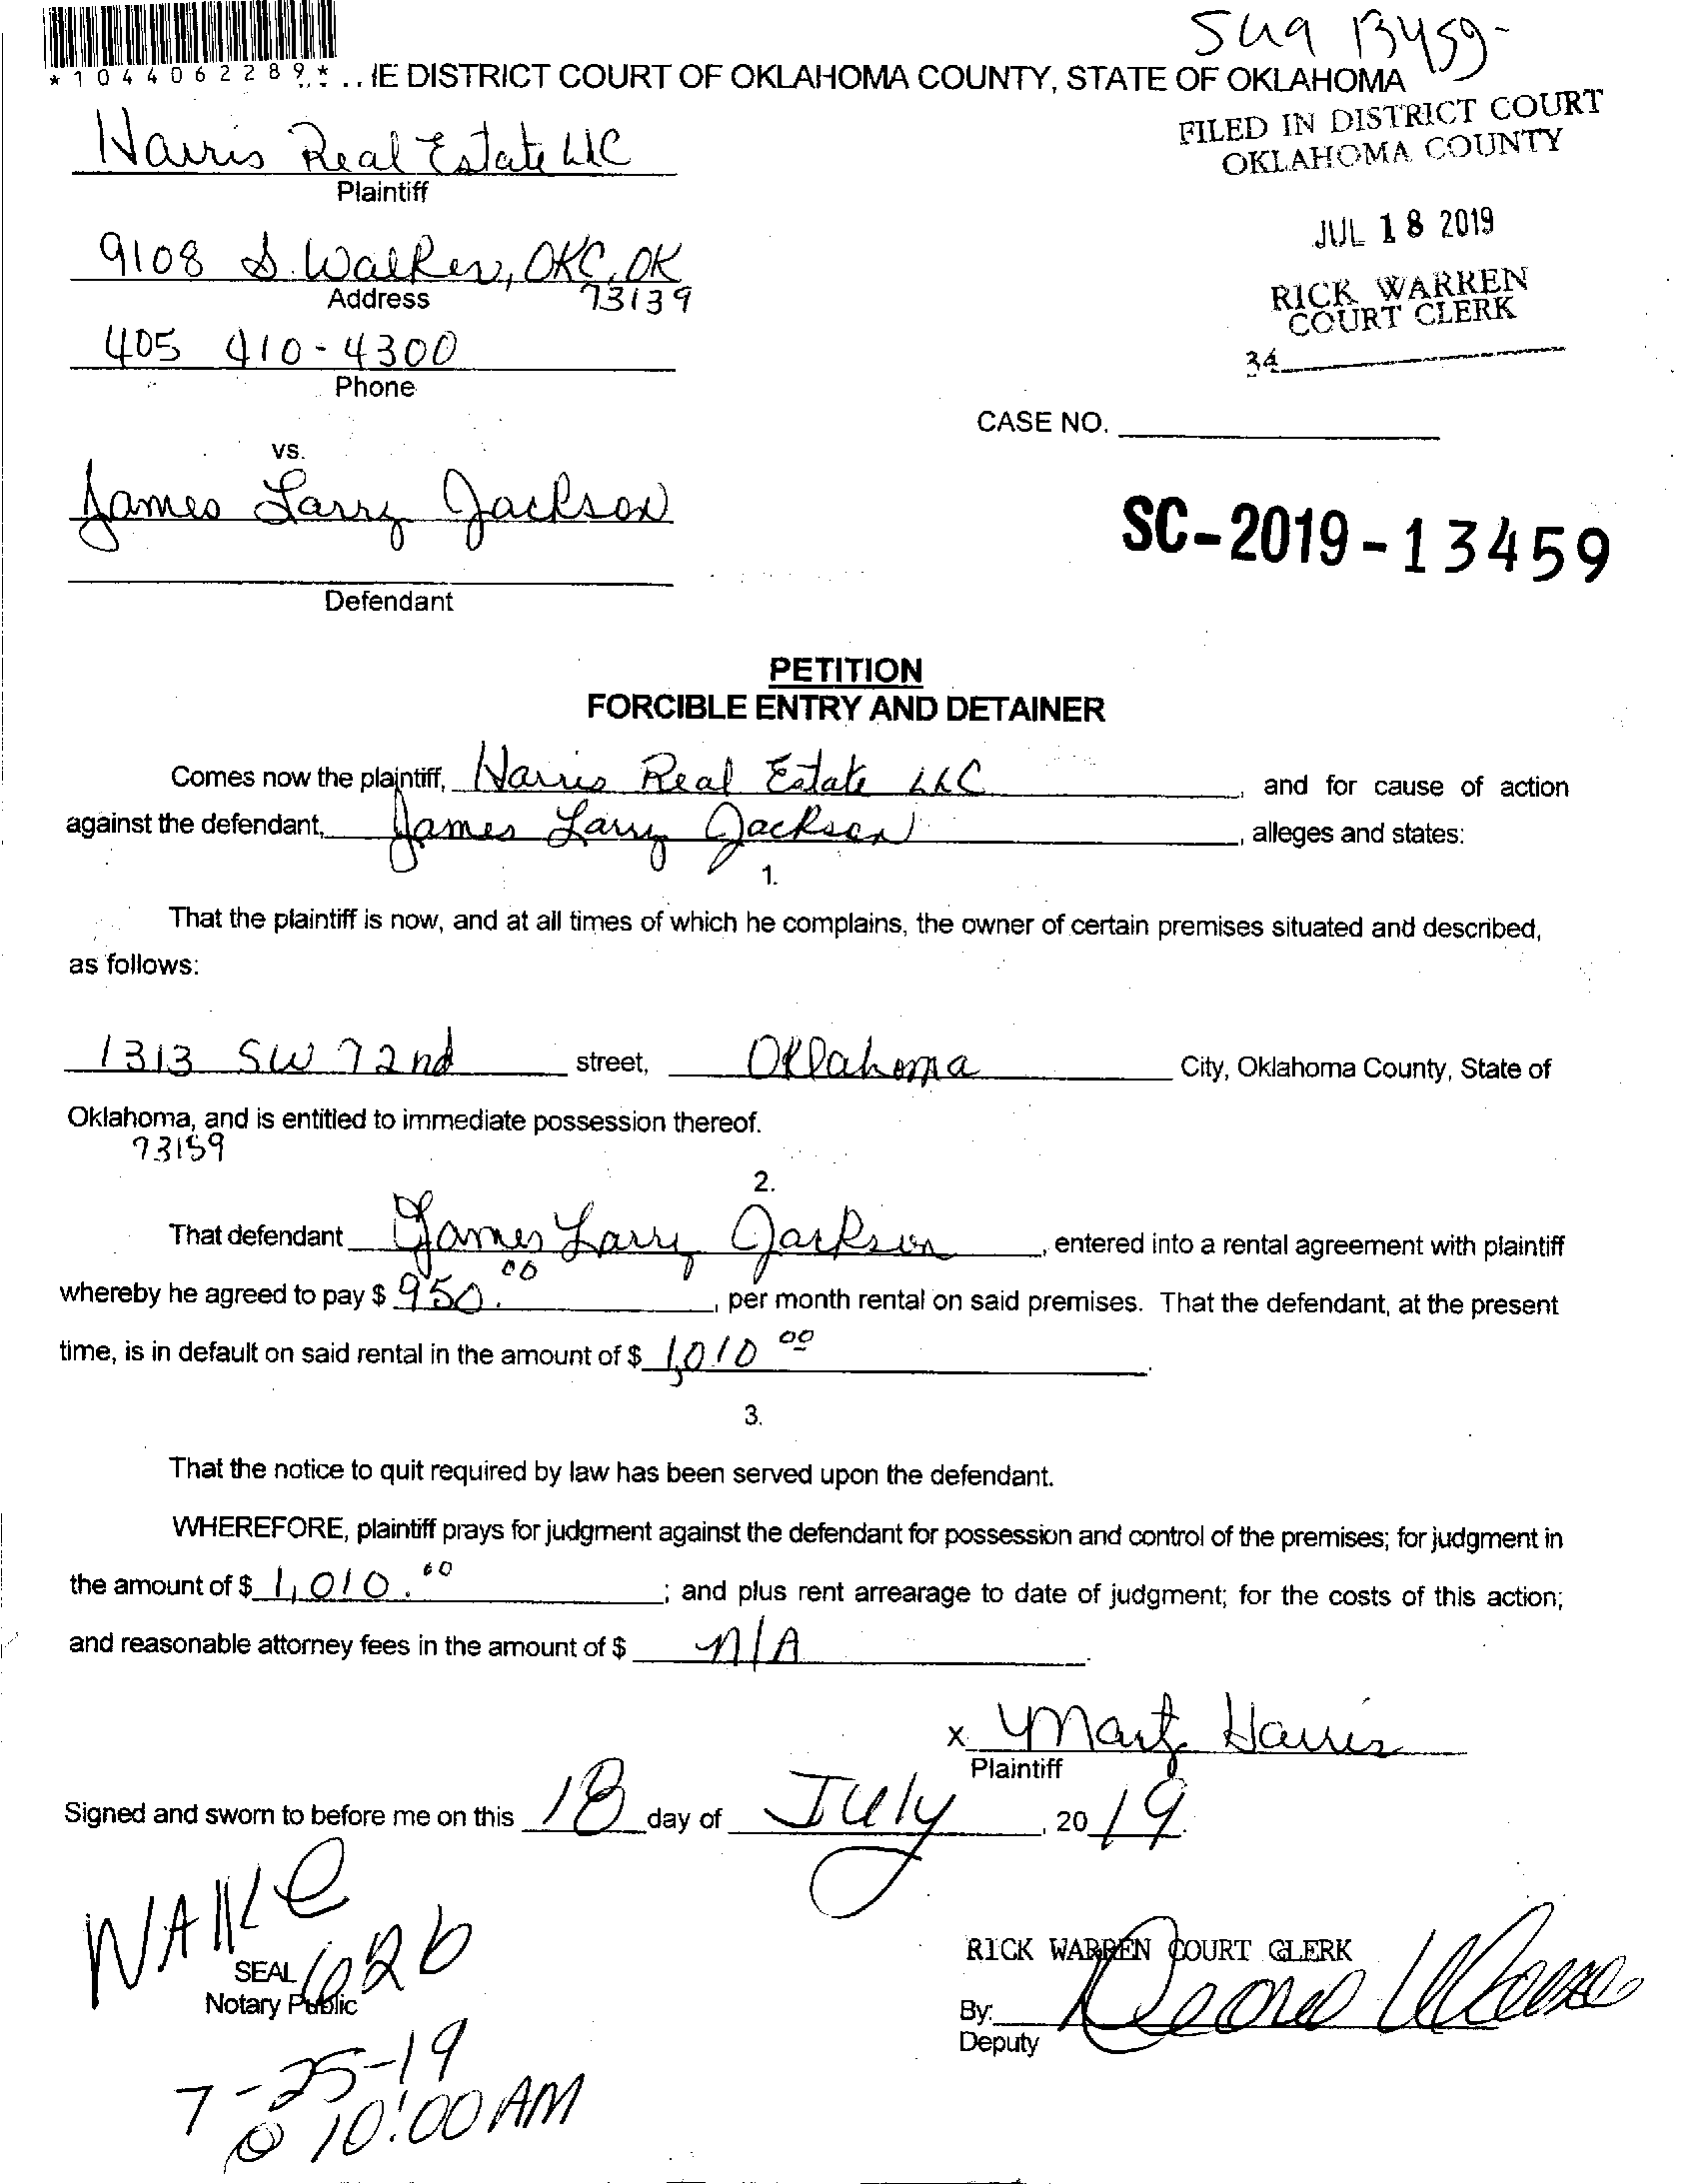 *1044062289*
..IE DISTRICT COURT OF OKLAHOMA COUNTY, STATE OF OKLAHOMA
13459-
FILED IN DISTRICT COURT
OKLAHOMA COUNTY
Harris Real Estate LLC
Plaintiff
JUL 18 2019
9108 S. Walker, OKC, OK
Address 73139
RICK WARREN
COURT CLERK
34
405 410-4300
Phone
CASE NO.
vs.
James Larry Jackson
SC-2019-13459
Defendant
PETITION
FORCIBLE ENTRY AND DETAINER
Comes now the plaintiff, Harris Real Estate LLC, and for cause of action
against the defendant, James Larry Jackson, alleges and states:
1.
That the plaintiff is now, and at all times of which he complains, the owner of certain premises situated and described,
as follows:
1313 SW 72nd street, Oklahoma City, Oklahoma County, State of
Oklahoma, and is entitled to immediate possession thereof.
73159
2.
That defendant James Larry Jackson, entered into a rental agreement with plaintiff
whereby he agreed to pay $ 950.00, per month rental on said premises. That the defendant, at the present
time, is in default on said rental in the amount of $ 1,010 00.
3.
That the notice to quit required by law has been served upon the defendant.
WHEREFORE, plaintiff prays for judgment against the defendant for possession and control of the premises; for judgment in
the amount of $ 1,010.00; and plus rent arrearage to date of judgment; for the costs of this action;
and reasonable attorney fees in the amount of $ n/A.
x Marty Harris
Plaintiff
Signed and sworn to before me on this 18 day of July, 2019.
SEAL
Notary Public
RICK WARREN COURT CLERK
By:
Deputy
7-25-19
@ 10:00 AM